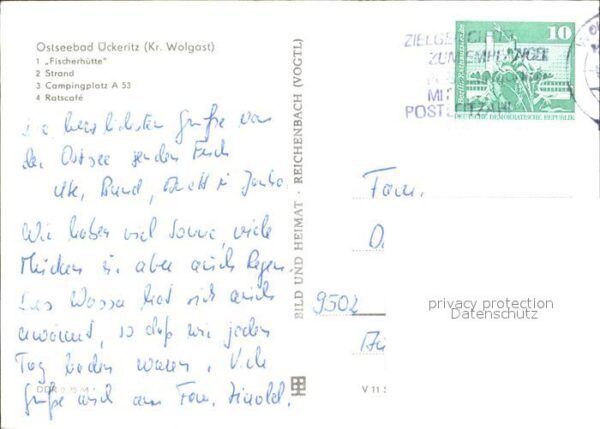 Ostseebad Ückeritz (Kr. Wolgast)
1 „Fischerhütte"
2 Strand
3 Campingplatz A 53
4 Ratscafé
herzlichsten Grüße von
der Ostsee senden Euch
Ute, Bernd,
Wir haben viel Sonne, viele
Mücken u. aber auch Regen.
Das Wasser hat sich auch
erwärmt, so daß wir jeden
Tag baden waren. Viele
Grüße auch an Fam.
DDR
BILD UND HEIMAT · REICHENBACH (VOGTL)
V 11
10
DEUTSCHE DEMOKRATISCHE REPUBLIK
ZUM EMPFÄNGER
MIT
POSTLEITZAHL
Fam.
9502
privacy protection
Datenschutz